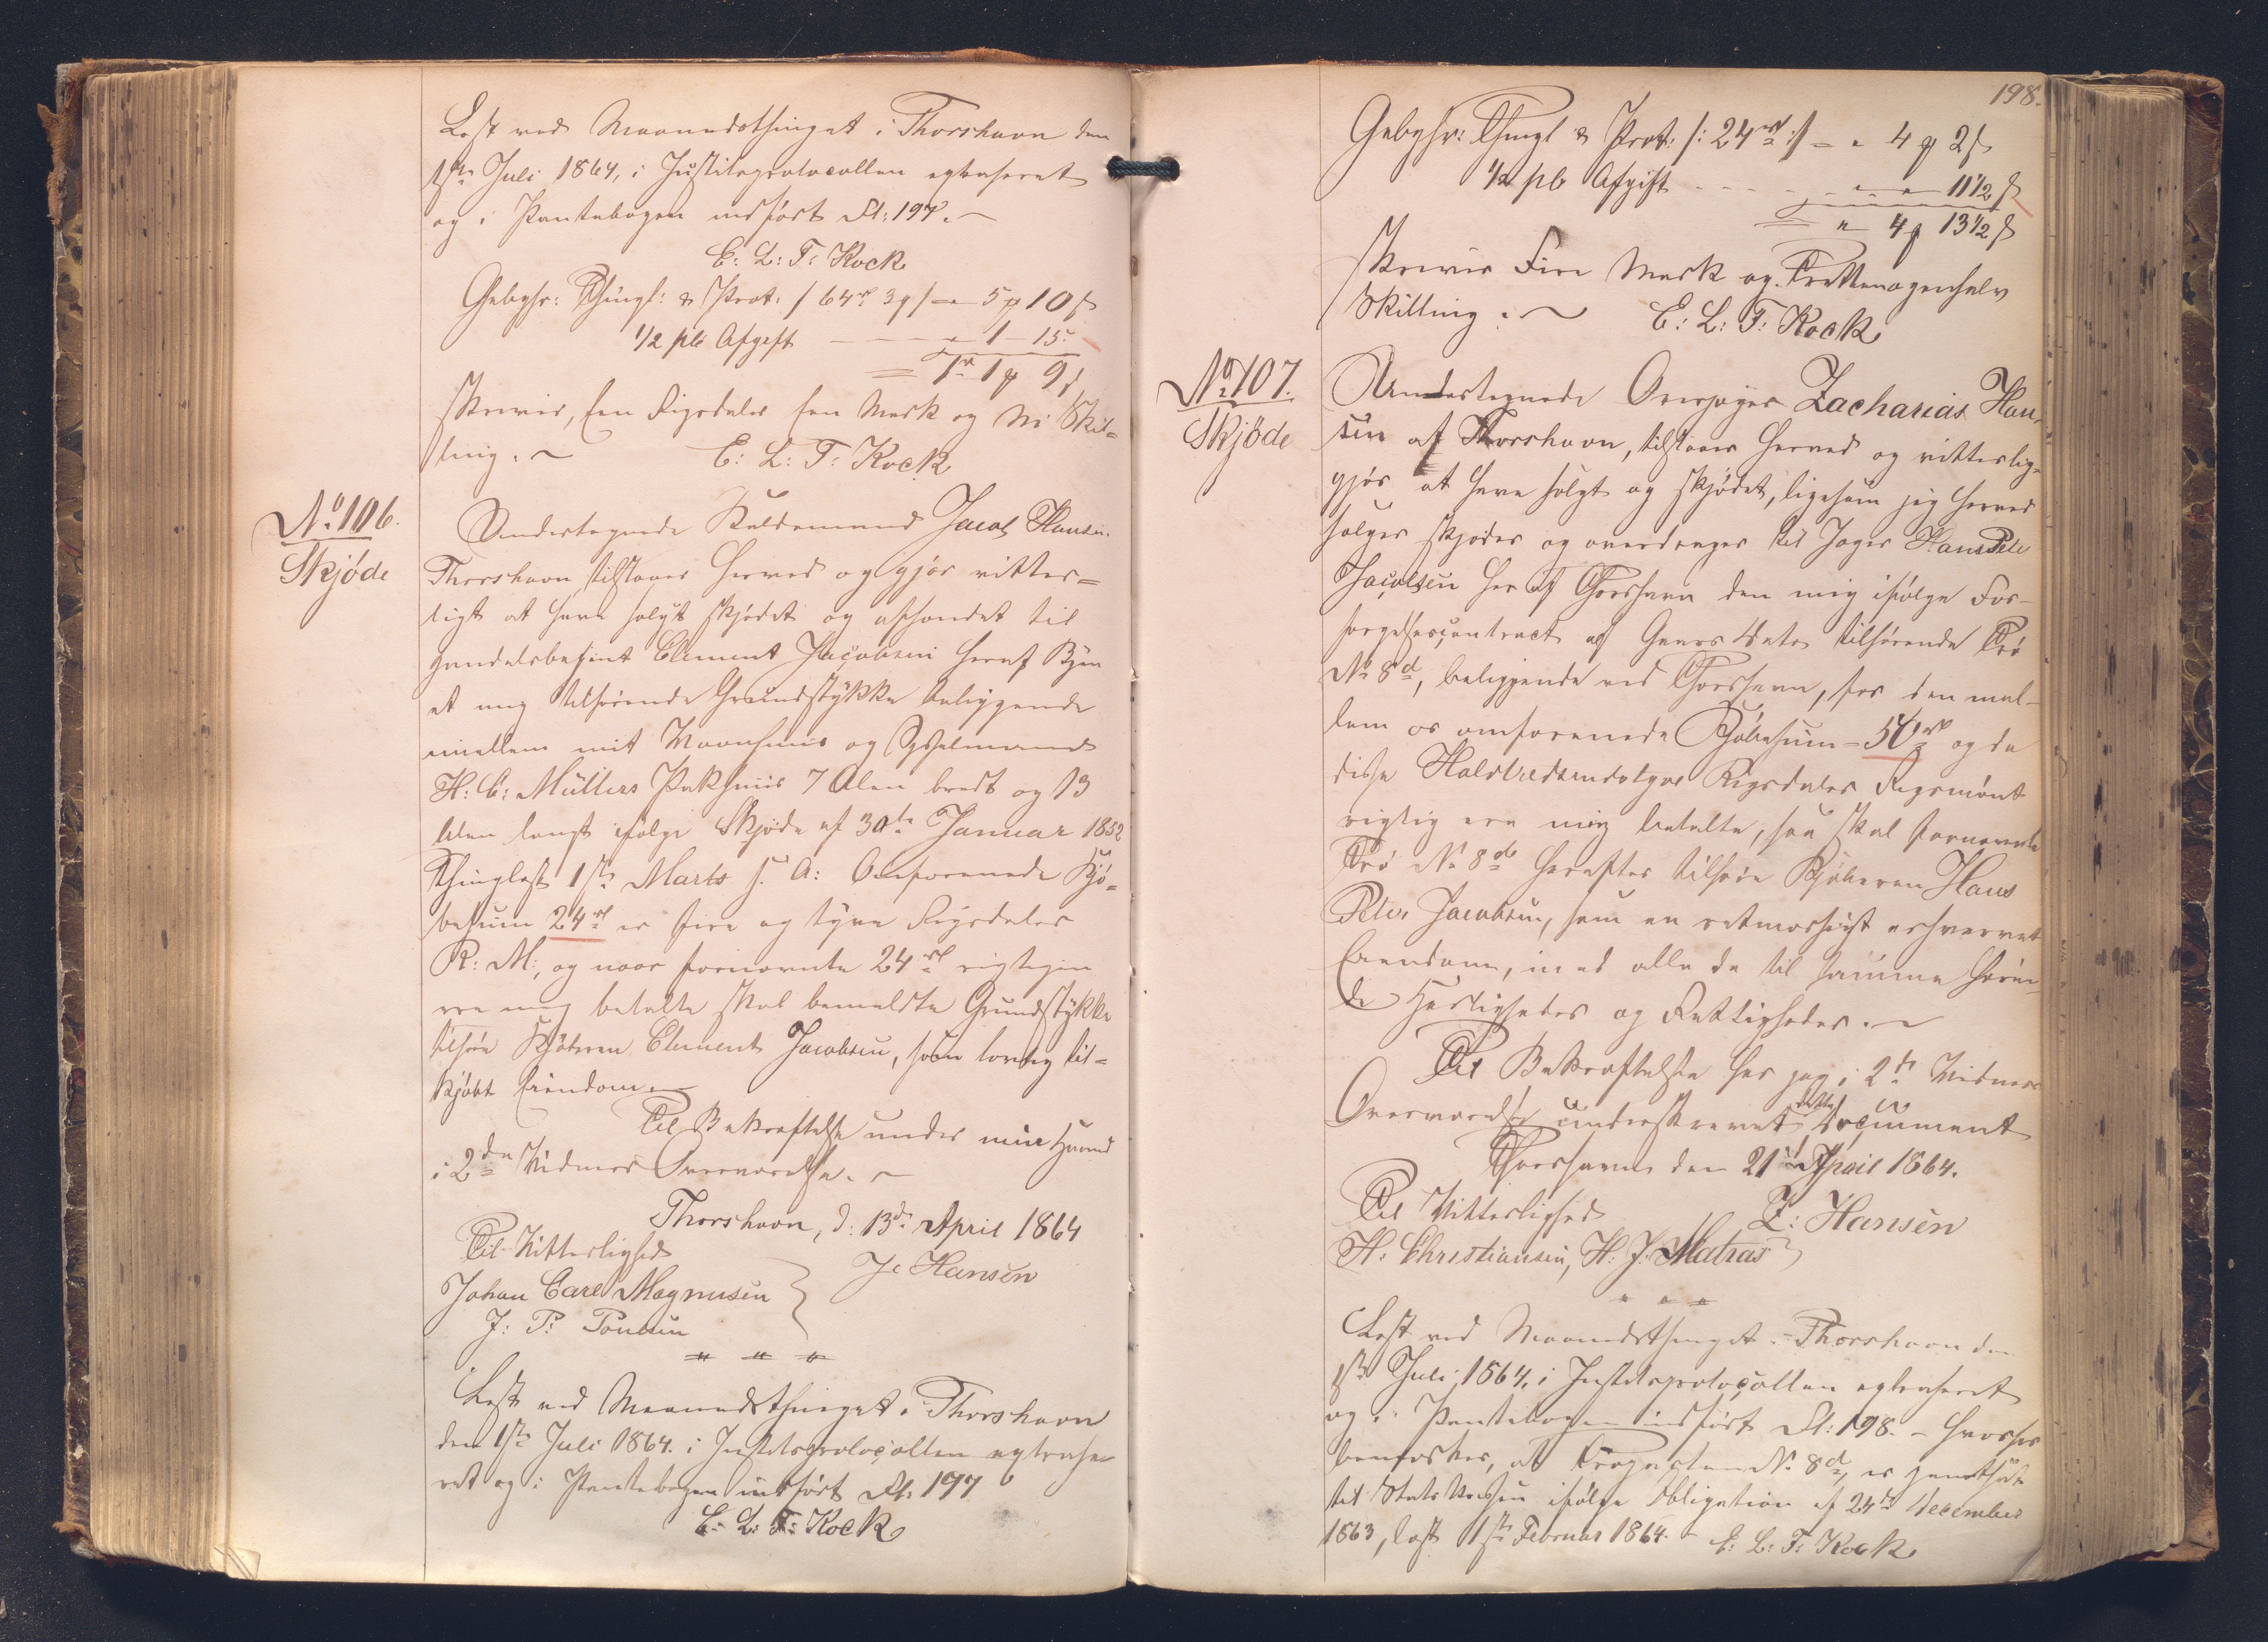 Læst ved Maanedsthinget i Thorshavn den
1ste Juli 1864, i Justitsprotocollen extraheret
og i Pantebogen indført Fol: 197.
E: L: T: Kock
Gebyhr: Thingl: & Prot: / 64rd 3 / = " 5 10
1/2 pCt Afgift - - - " 1 - 15
= 1rd 1 9
skriver, Een Rigsdaler Een Mark og Ni Skil=
ling.
E: L: T: Kock
No 106.
Skjöde
Undertegnede Jacob Hansen
Thorshavn, tilstaaer herved og gjør vitter=
ligt at have solgt skjödet og afhændet til
Handelsbetjent Clement Jacobsen heraf Byen
et mig tilhørende Grundstykke beliggende
imellem mit Vaanhuus og Sysselmand
H: C: Müllers Pakhuus 7 Alen bredt og 13
Alen langt ifølge Skjøde af 30te Januar 1852
Thinglæst 1ste Marts s. A: Omforenede Kjö=
besum 24rd er fire og tyve Rigsdaler
R: M:, og naar fornævnte 24rd rigtigen
ere mig betalte skal bemeldte Grundstykke
tilhøre Kjøberen Clement Jacobsen, som lovlig til=
kjøbt Eiendom.
Til Bekræftelse under min Haand
i 2de Vidners Overværelse.
Thorshavn, d: 13de April 1864
Til Vitterlighed
Jc Hansen
Johan Carl Magnusen
J: P:
" " "
Læst ved Maanedsthinget i Thorshavn
den 1ste Juli 1864. i Justitsprotocollen extrahe=
ret og i Pantebogen indført Fol: 197
E: L: T: Kock
198.
Gebyhr: Thingl & Prot: /: 24rd :/ = " 4 2
1/2 pCt Afgift - - - - " " 11 1/2
= " 4 13 1/2
skriver Fire Mark og Trettenogenhalv
Skilling.
E: L: T: Kock
No 107.
Skjöde
Undertegnede Zacharias Han=
sen af Thorshavn, tilstaaer herved og vitterlig=
gjör at have solgt og skjödet, ligesom jeg herved
sælger skjöder og overdrager til Hans Peter
Jacobsen her af Thorshavn den mig ifølge For-
sørgelsescontract af Gaars Dato tilhørende Trø
No 8d, beliggende ved Thorshavn, for den mel-
lem os omforenede Kjöbesum = 50rd og da
disse Halvtredsindstyve Rigsdaler Rigsmönt
rigtig ere mig betalte, saa skal fornævnte
Trø No 8d herefter tilhøre Kjøberen Hans
Peter Jacobsen, som en retmæssigt erhvervet
Eiendom, med alle de til samme høren-
de Herligheder og Rettigheder.
Til Bekræftelse har jeg i 2de Vidners
Overværelse underskrevet dette Document
Thorshavn den 21de April 1864.
Til Vitterlighed
Z: Hansen
H. Christiansen, H. J. Matras
" " "
Læst ved Maanedsthinget i Thorshavn den
1ste Juli 1864, i Justitsprotocollen extraheret
og i Pantebogen indført Fol: 198. - hvorhos
bemærkes, at No 8d, er pantsat
til Statskassen ifølge Obligation af 24de December
1863, læst 1ste Februar 1864. - E: L: T: Kock